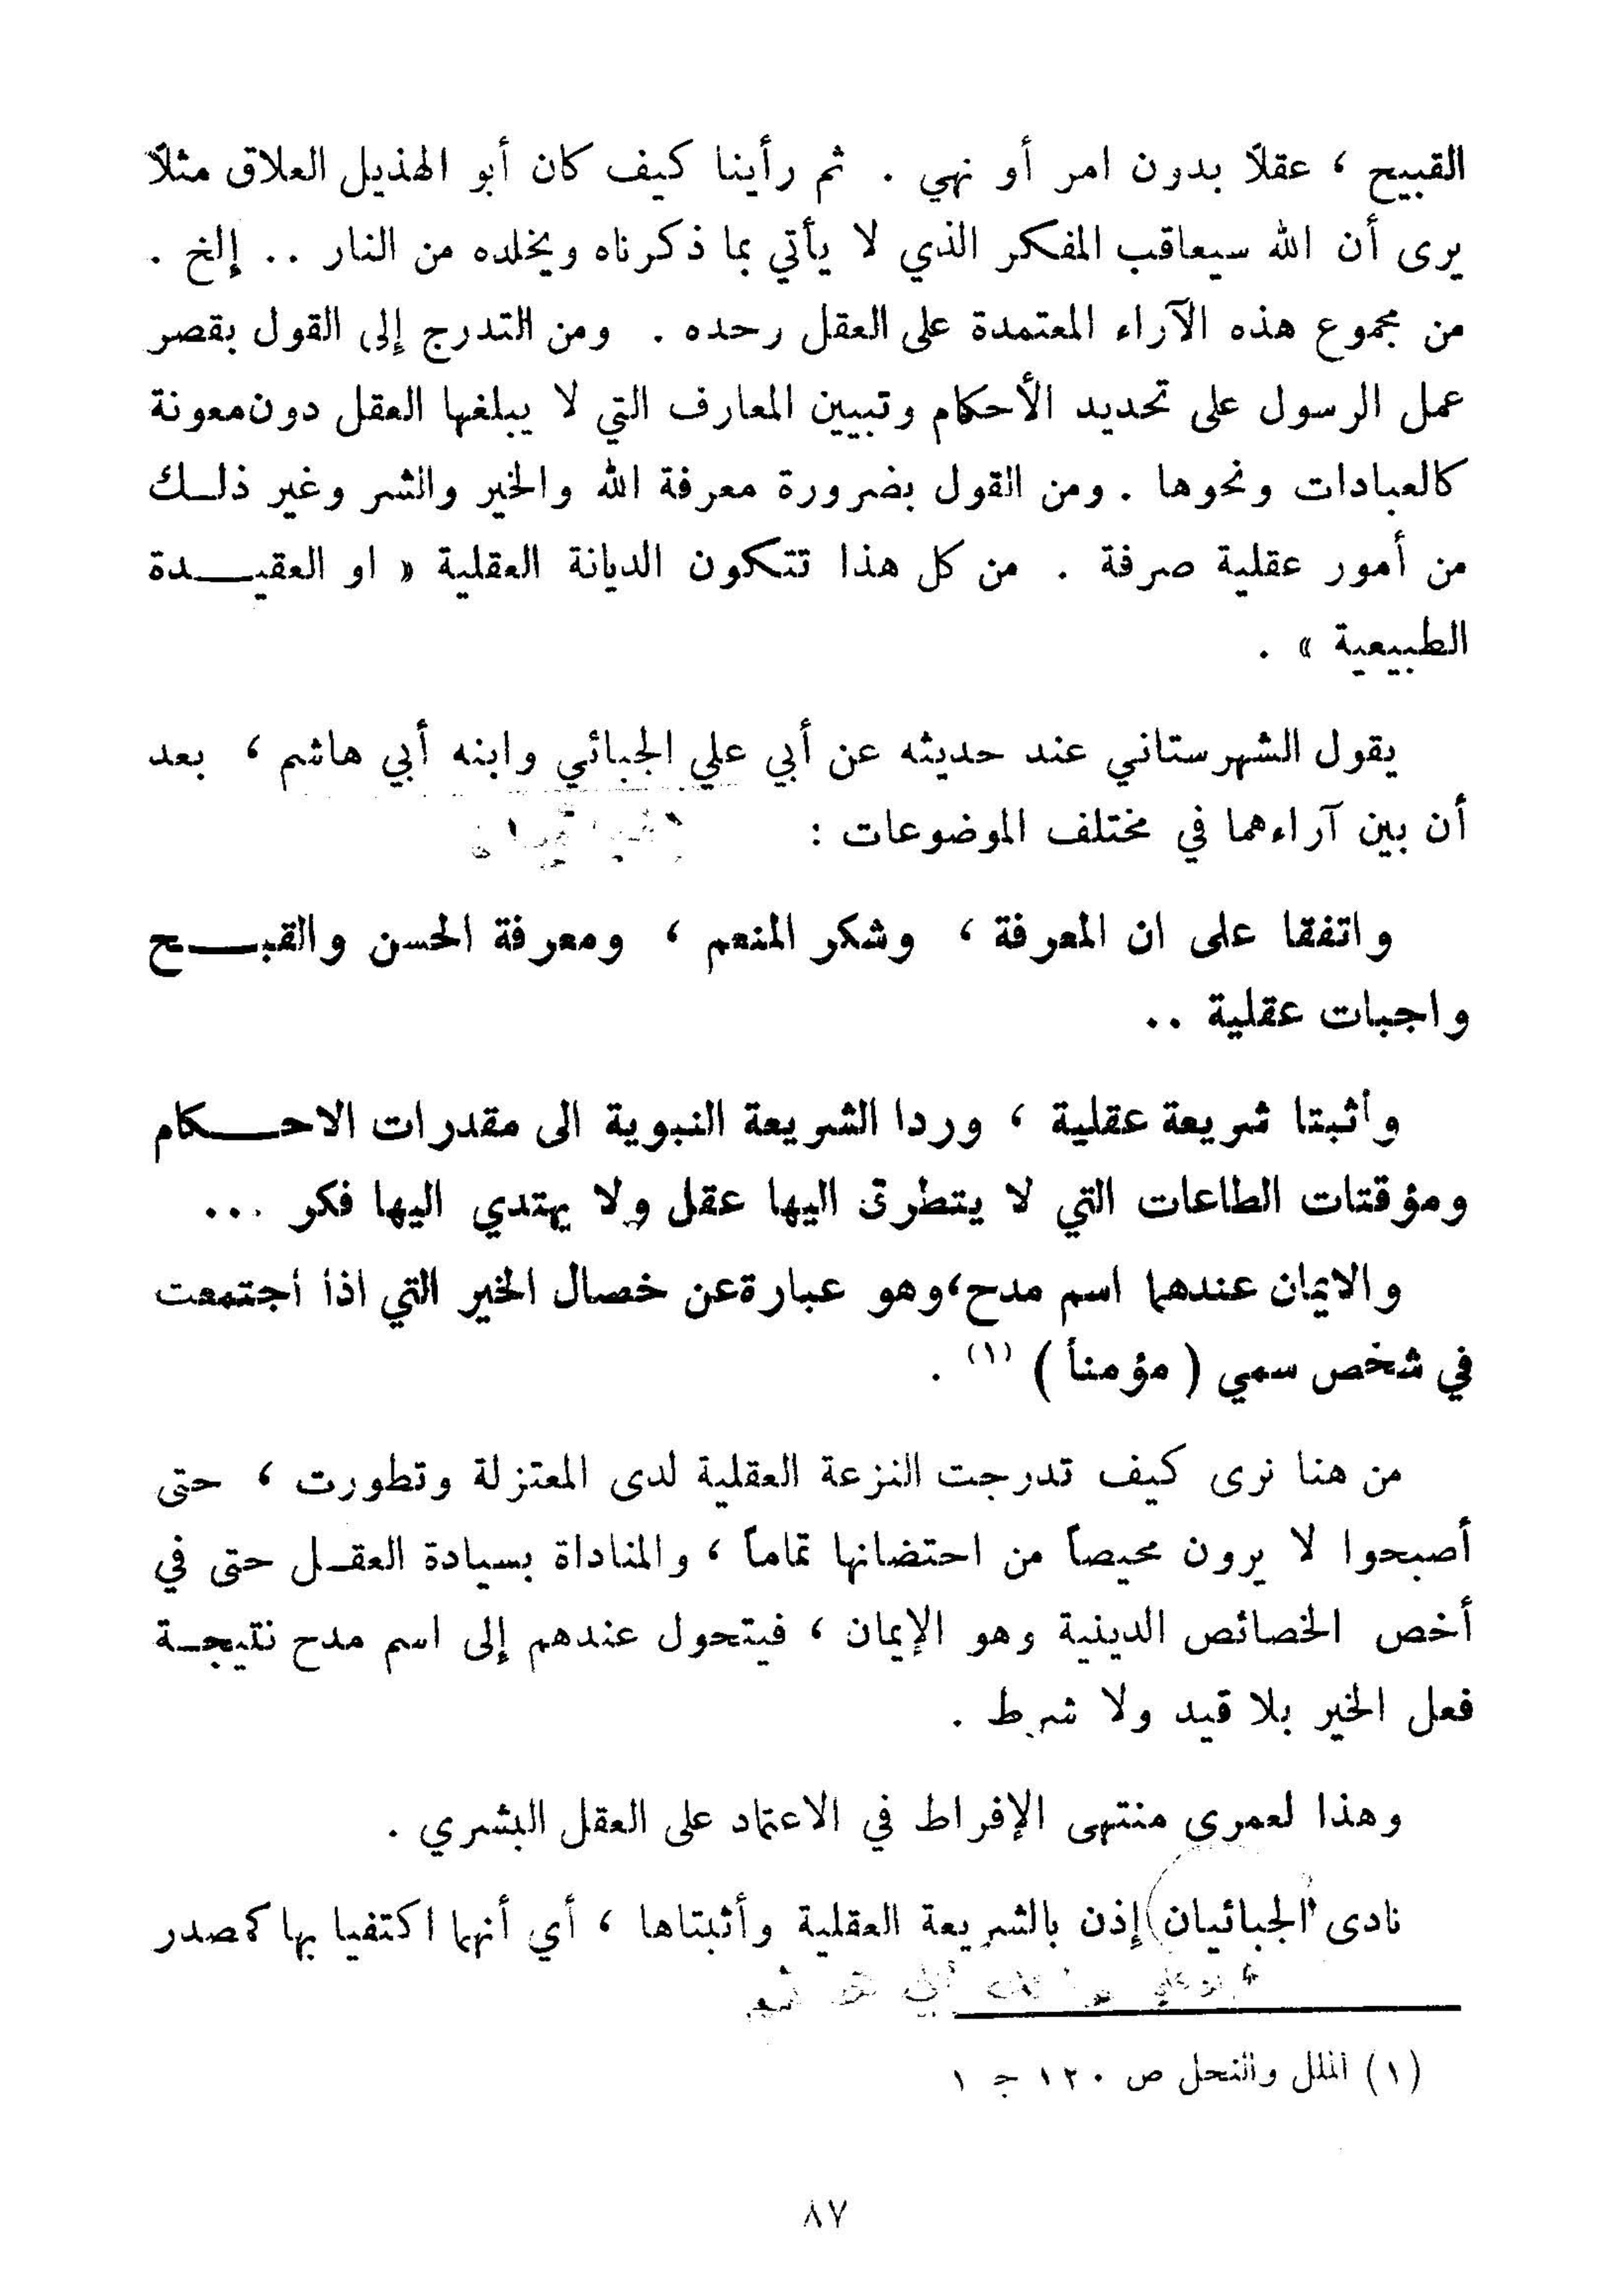 القبيح ، عقلاً بدون امر أو نهي . ثم رأينا كيف كان أبو الهذيل العلاق مثلاً
يرى أن الله سيعاقب المفكر الذي لا يأتي بما ذكرناه ويخلده من النار .. إلخ .
من مجموع هذه الآراء المعتمدة على العقل رحده . ومن التدرج إلى القول بقصر
عمل الرسول على تحديد الأحكام وتبيين المعارف التي لا يبلغها العقل دون معونة
كالعبادات ونحوها . ومن القول بضرورة معرفة الله والخير والشر وغير ذلك
من أمور عقلية صرفة . من كل هذا تتكون الديانة العقلية « او العقيدة
الطبيعية » .
يقول الشهرستاني عند حديثه عن أبي علي الجبائي وابنه أبي هاشم ، بعد
أن بين آراءهما في مختلف الموضوعات :
واتفقا على ان المعرفة ، وشكر المنعم ، ومعرفة الحسن والقبح
واجبات عقلية ..
وأثبتا شريعة عقلية ، وردا الشريعة النبوية الى مقدرات الاحكام
ومؤقتات الطاعات التي لا يتطرق اليها عقل ولا يهتدي اليها فكر ...
والايمان عندهما اسم مدح، وهو عبارة عن خصال الخير التي اذا اجتمعت
في شخص سمي ( مؤمنأ ) (١) .
من هنا نرى كيف تدرجت النزعة العقلية لدى المعتزلة وتطورت ، حتى
أصبحوا لا يرون محيصاً من احتضانها تماماً ، والمناداة بسيادة العقل حتى في
أخص الخصائص الدينية وهو الإيمان ، فيتحول عندهم إلى اسم مدح نتيجة
فعل الخير بلا قيد ولا شرط .
وهذا لعمرى منتهى الإفراط في الاعتماد على العقل البشري .
نادى الجبائيان إذن بالشريعة العقلية وأثبتاها ، أي أنهما اكتفيا بها كمصدر
(١) الملل والنحل ص ١٢٠ ج ١
٨٧